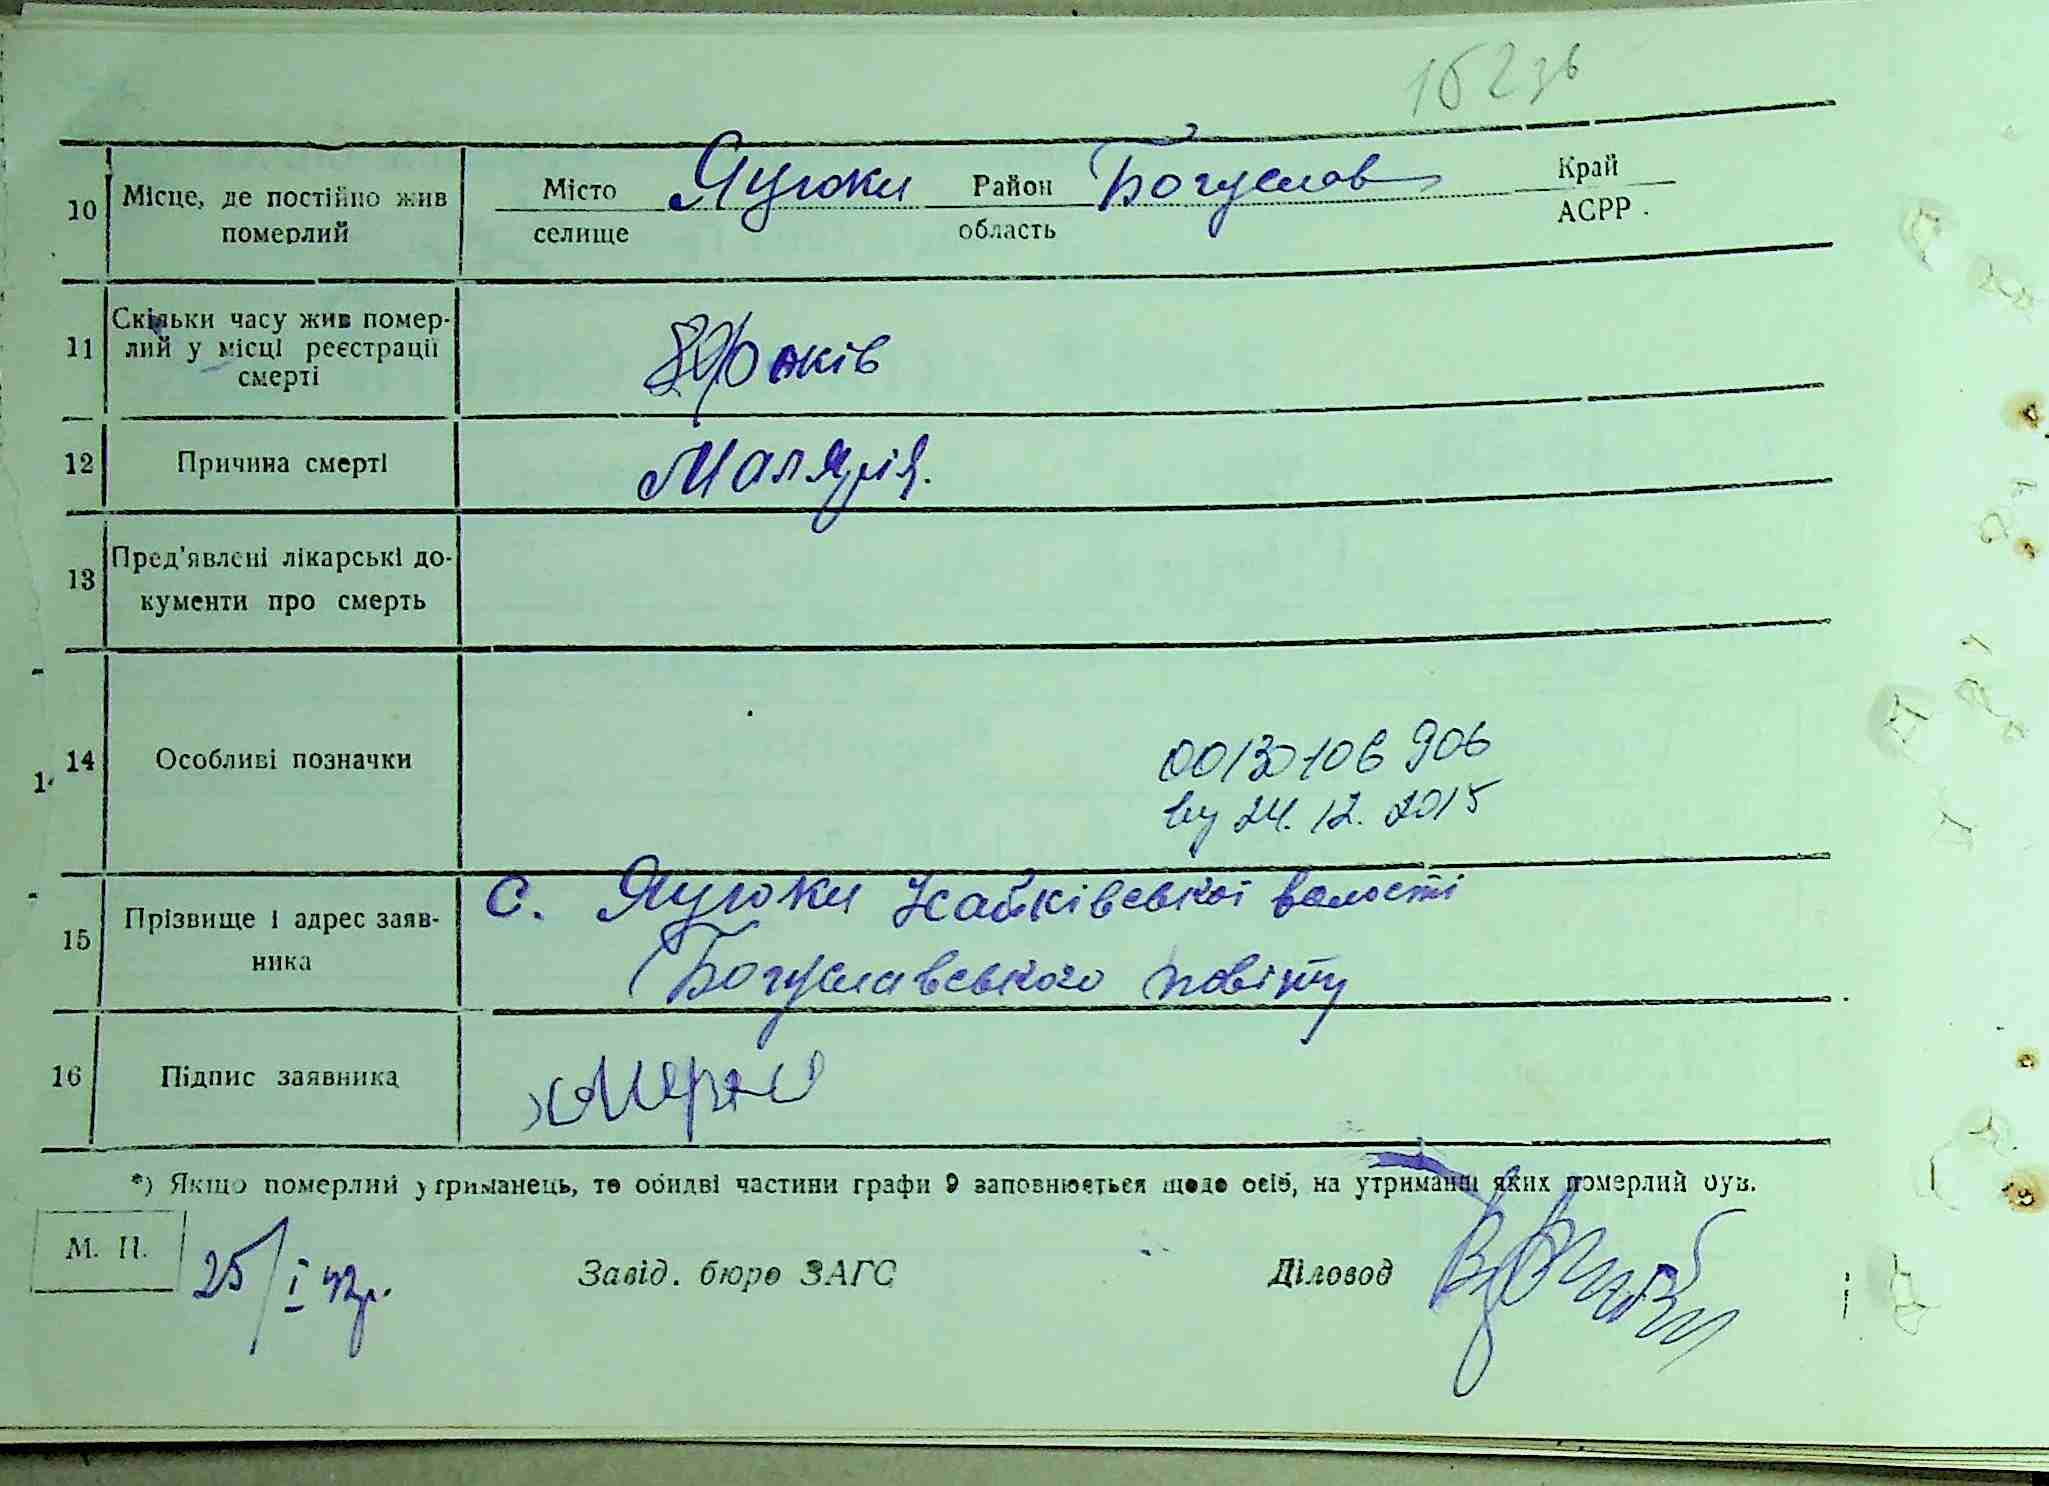 162зв
10 Місце, де постійно жив померлий
Місто селище Яцюки Район область Богуслав Край АСРР.
11 Скільки часу жив помер-
лий у місці реєстрації
смерті
років
12 Причина смерті Малярія.
13 Пред'явлені лікарські до-
кументи про смерть
14 Особливі позначки
00130106906
від 24.12.2015
15 Прізвище і адрес заяв-
ника
с. Яцюки волості
Богуславського повіту
16 Підпис заявника
*) Якщо померлий утриманець, то обидві частини графи 9 заповнюється щодо осіб, на утриманні яких померлий був.
М. П. 25/I 42р. Завід. бюро ЗАГС Діловод